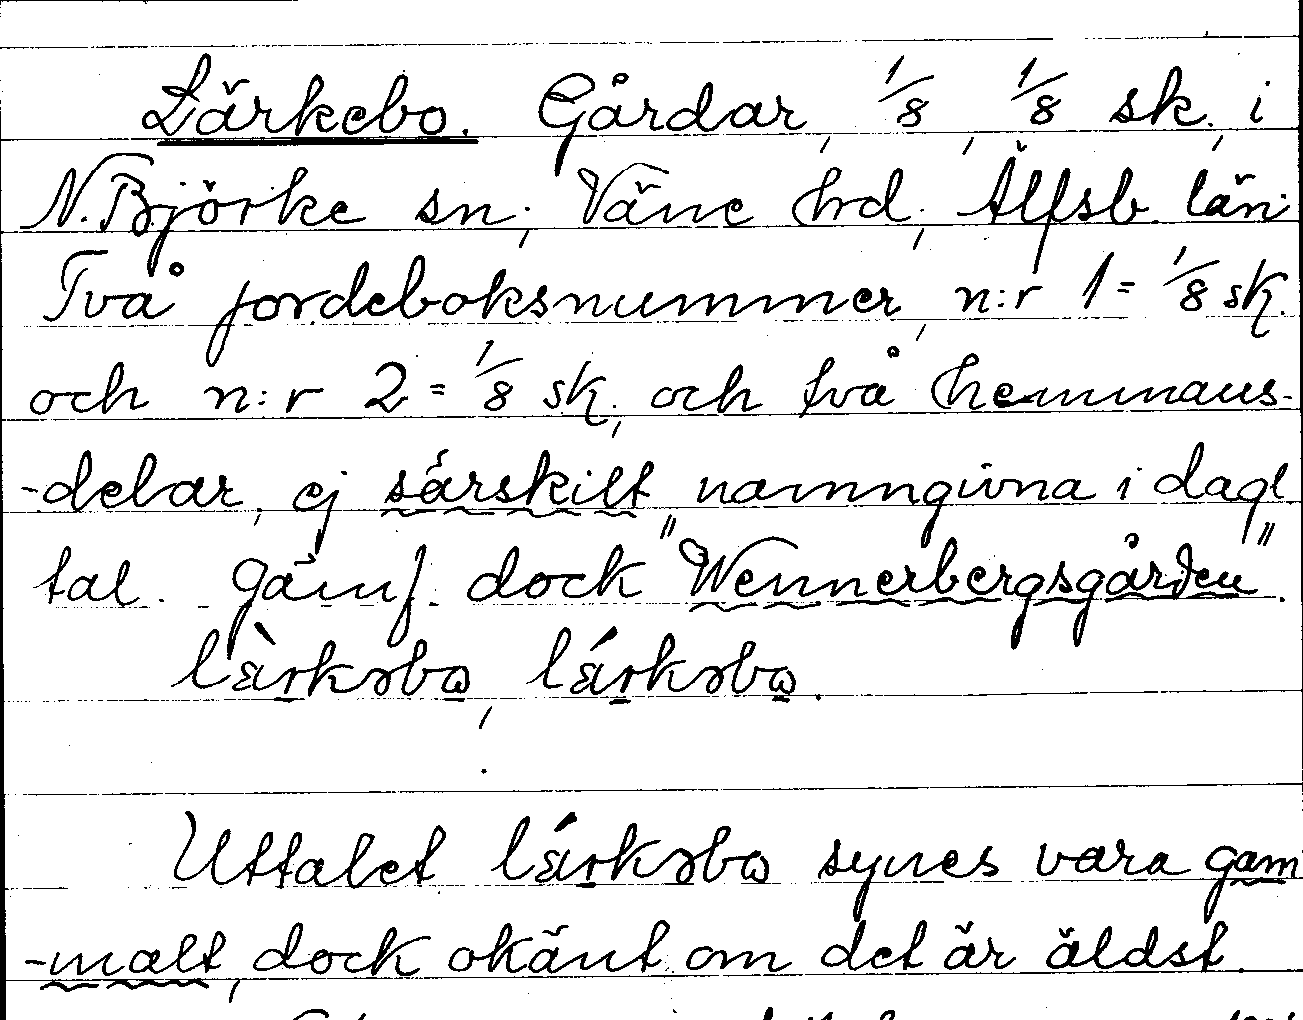 Lärkebo. Gårdar, 1/8, 1/8 sk., i
N. Björke sn., Väne hd., Älfsb. län.
Två jordeboksnummer, n:r 1 = 1/8 sk.
och n:r 2 = 1/8 sk., och två hemmans-
-delar, ej särskilt namngivna i dagl.
tal. Jämf. dock "Wennerbergsgården".
lὲrkəbω, lέrkəbω.
Uttalet lέrkəbω synes vara gam
-malt, dock okänt om det är äldst.